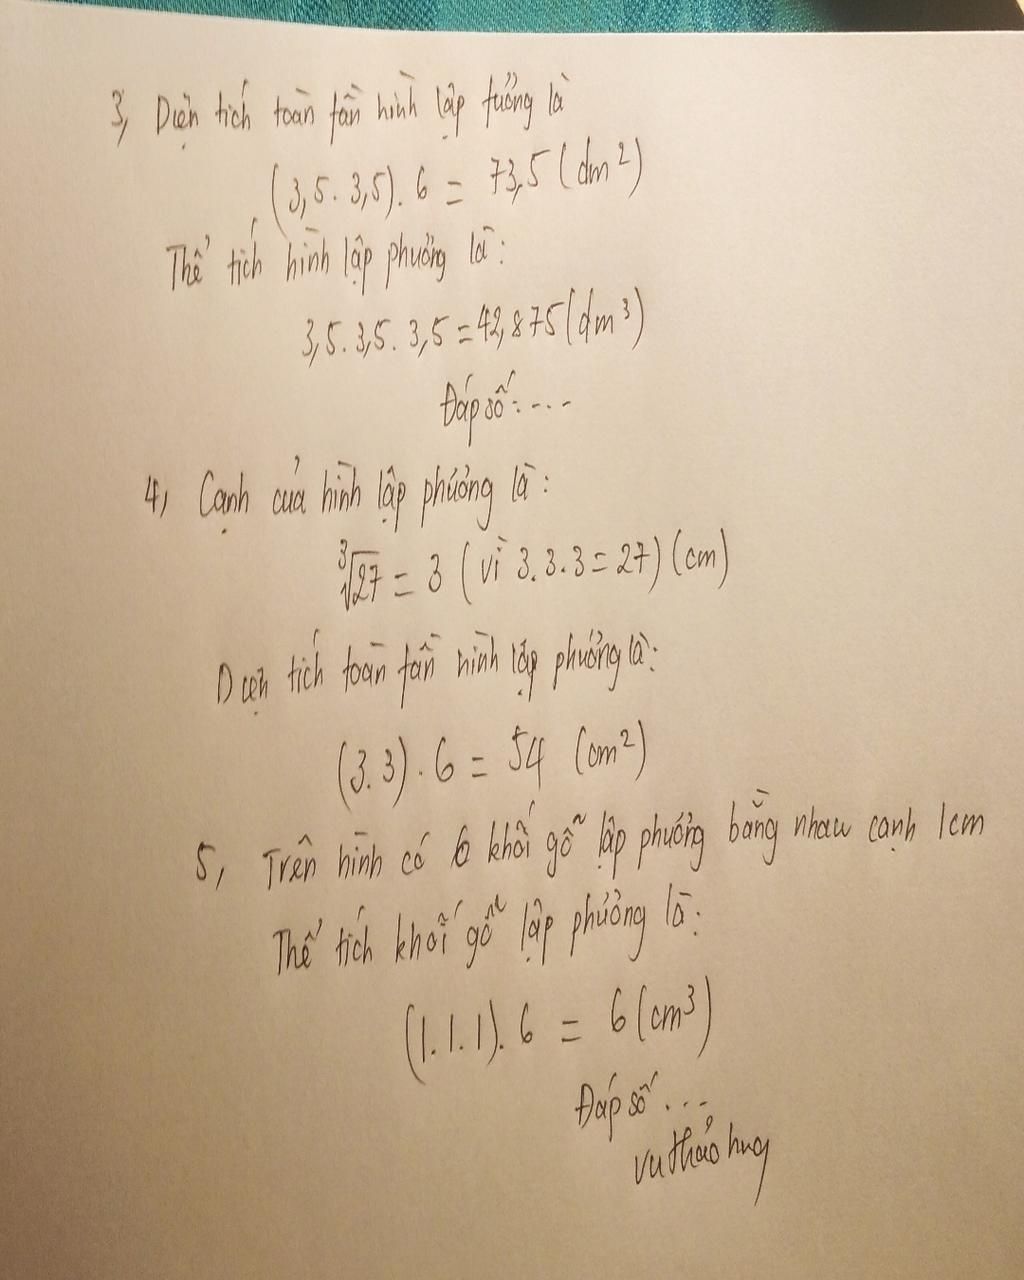 3, Diện tích toàn fần hình lập fương là
(3,5. 3,5). 6 = 73,5 (dm²)
Thể tích hình lập phương là:
3,5. 3,5. 3,5 = 42,875 (dm³)
Đáp số:...
4, Cạnh của hình lập phương là:
∛27 = 3 (vì 3.3.3 = 27) (cm)
Diện tích toàn fần hình lập phương là:
(3.3). 6 = 54 (cm²)
5, Trên hình có 6 khối gỗ lập phương bằng nhau cạnh 1cm
Thể tích khối gỗ lập phương là:
(1.1.1). 6 = 6 (cm³)
Đáp số...
vuthảo